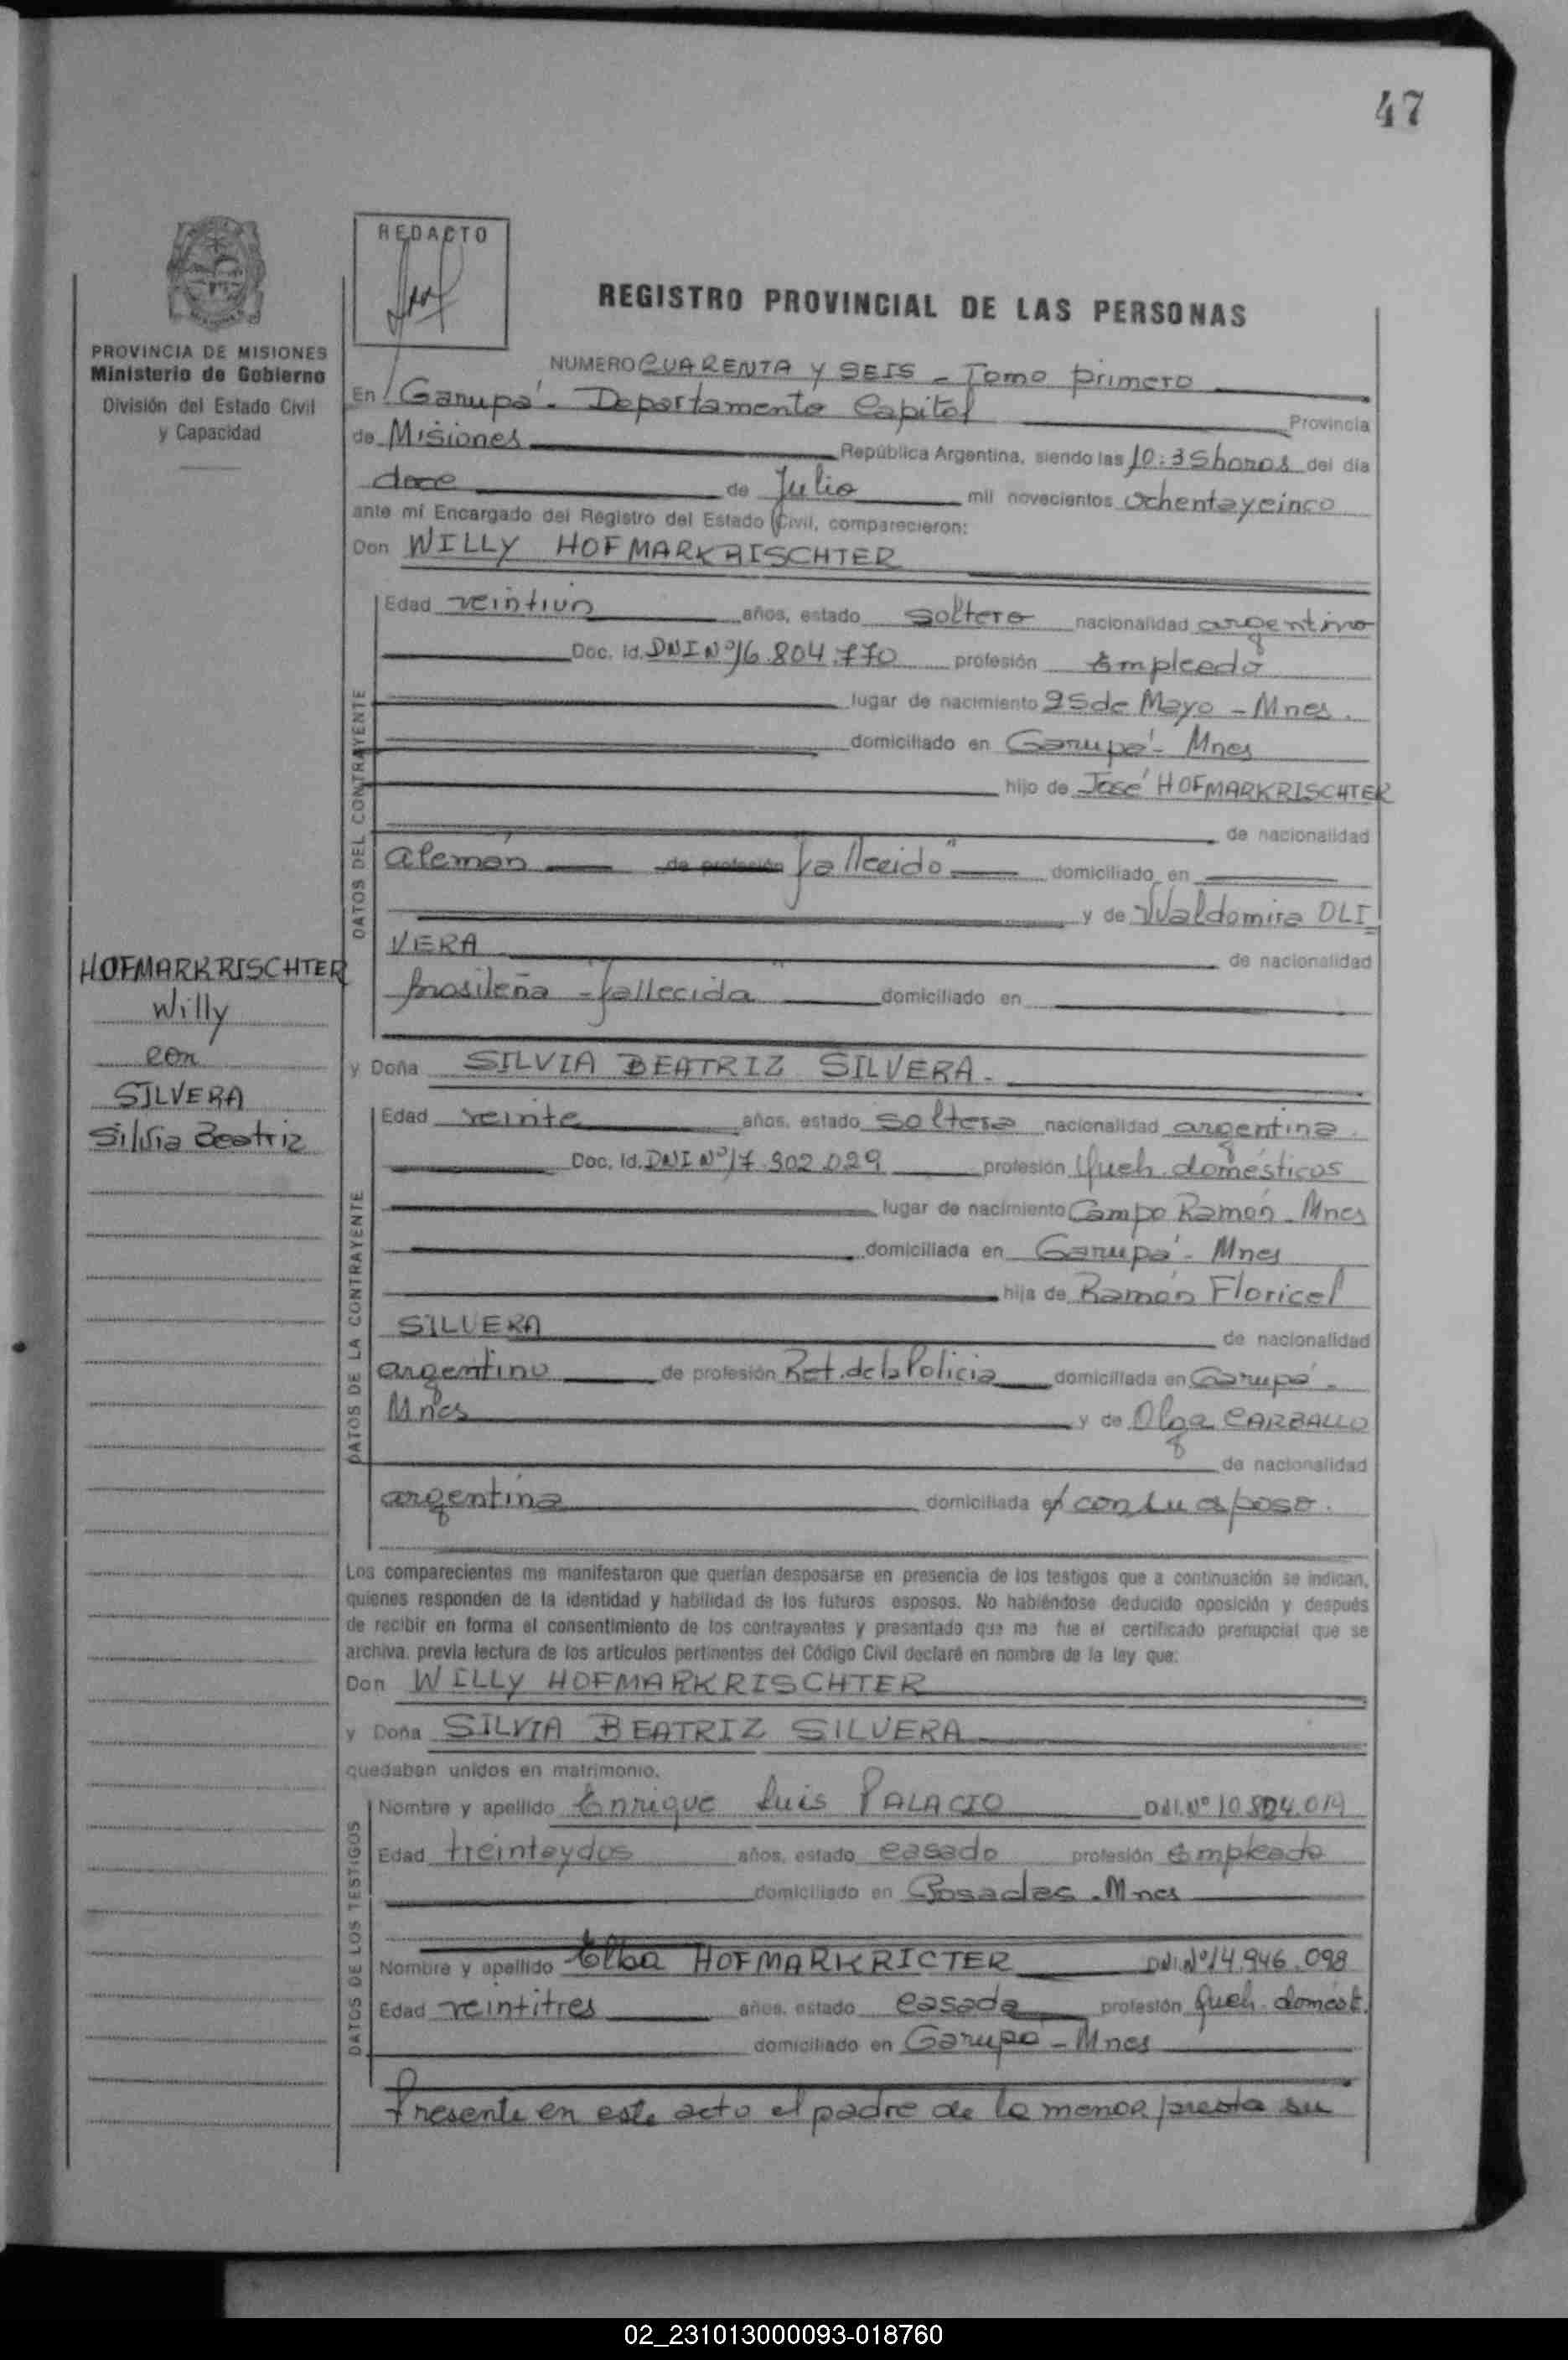 47
REDACTO
REGISTRO PROVINCIAL DE LAS PERSONAS
PROVINCIA DE MISIONES
Ministerio de Gobierno
División del Estado Civil
y Capacidad
NUMERO CUARENTA Y SEIS - Tomo primero
En Garupá - Departamento Capital Provincia
de Misiones República Argentina, siendo las 10:35 horas del día
doce de Julio mil novecientos ochentaycinco
ante mí Encargado del Registro del Estado Civil, comparecieron:
Don WILLY HOFMARKRISCHTER
Edad veintiun años, estado soltero nacionalidad argentino
Doc. Id. DNI Nº 16.804.770 profesión Empleado
lugar de nacimiento 25 de Mayo - Mnes.
domiciliado en Garupá - Mnes
hijo de José HOFMARKRISCHTER
de nacionalidad
alemán de profesión fallecido domiciliado en
y de Waldomira OLI
VERA de nacionalidad
brasileña - fallecida domiciliado en
DATOS DEL CONTRAYENTE
HOFMARKRISCHTER
Willy
con
SILVERA
Silvia Beatriz
y Doña SILVIA BEATRIZ SILVERA.
Edad veinte años, estado soltera nacionalidad argentina.
Doc. Id. DNI Nº 17.302.029 profesión Queh. domésticos
lugar de nacimiento Campo Ramón - Mnes
domiciliada en Garupá - Mnes
hija de Ramón Floricel
SILVERA de nacionalidad
argentino de profesión Ret. de la Policia domiciliada en Garupá -
Mnes y de Olga CARBALLO
de nacionalidad
argentina domiciliada en con su esposo.
DATOS DE LA CONTRAYENTE
Los comparecientes me manifestaron que querían desposarse en presencia de los testigos que a continuación se indican,
quienes responden de la identidad y habilidad de los futuros esposos. No habiéndose deducido oposición y después
de recibir en forma el consentimiento de los contrayentes y presentado que me fue el certificado prenupcial que se
archiva, previa lectura de los artículos pertinentes del Código Civil declaré en nombre de la ley que:
Don WILLY HOFMARKRISCHTER
y Doña SILVIA BEATRIZ SILVERA
quedaban unidos en matrimonio.
Nombre y apellido Enrique Luis PALACIO DNI.Nº 10.804.019
Edad treintaydos años, estado casado profesión Empleado
domiciliado en Posadas - Mnes
Nombre y apellido Elba HOFMARKRICTER DNI.Nº 14.946.098
Edad veintitres años, estado casada profesión Queh. domést.
domiciliado en Garupá - Mnes
DATOS DE LOS TESTIGOS
Presente en este acto el padre de la menor presta su
02_231013000093-018760